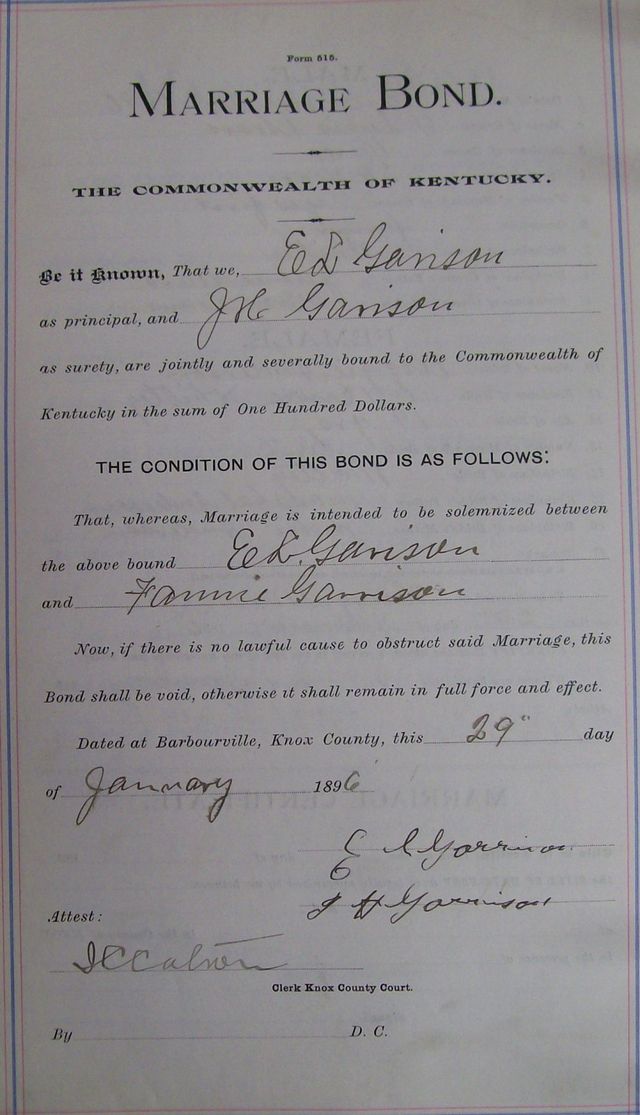 Form 515.
MARRIAGE BOND.
THE COMMONWEALTH OF KENTUCKY.
Be it Known, That we, E L Garison
as principal, and J H Garison
as surety, are jointly and severally bound to the Commonwealth of
Kentucky in the sum of One Hundred Dollars.
THE CONDITION OF THIS BOND IS AS FOLLOWS:
That, whereas, Marriage is intended to be solemnized between
the above bound E L Garison
and Fannie Garrison
Now, if there is no lawful cause to obstruct said Marriage, this
Bond shall be void, otherwise it shall remain in full force and effect.
Dated at Barbourville, Knox County, this 29" day
of January 1896
E L Garrison
J H Garrison
Attest:
Clerk Knox County Court.
By D. C.